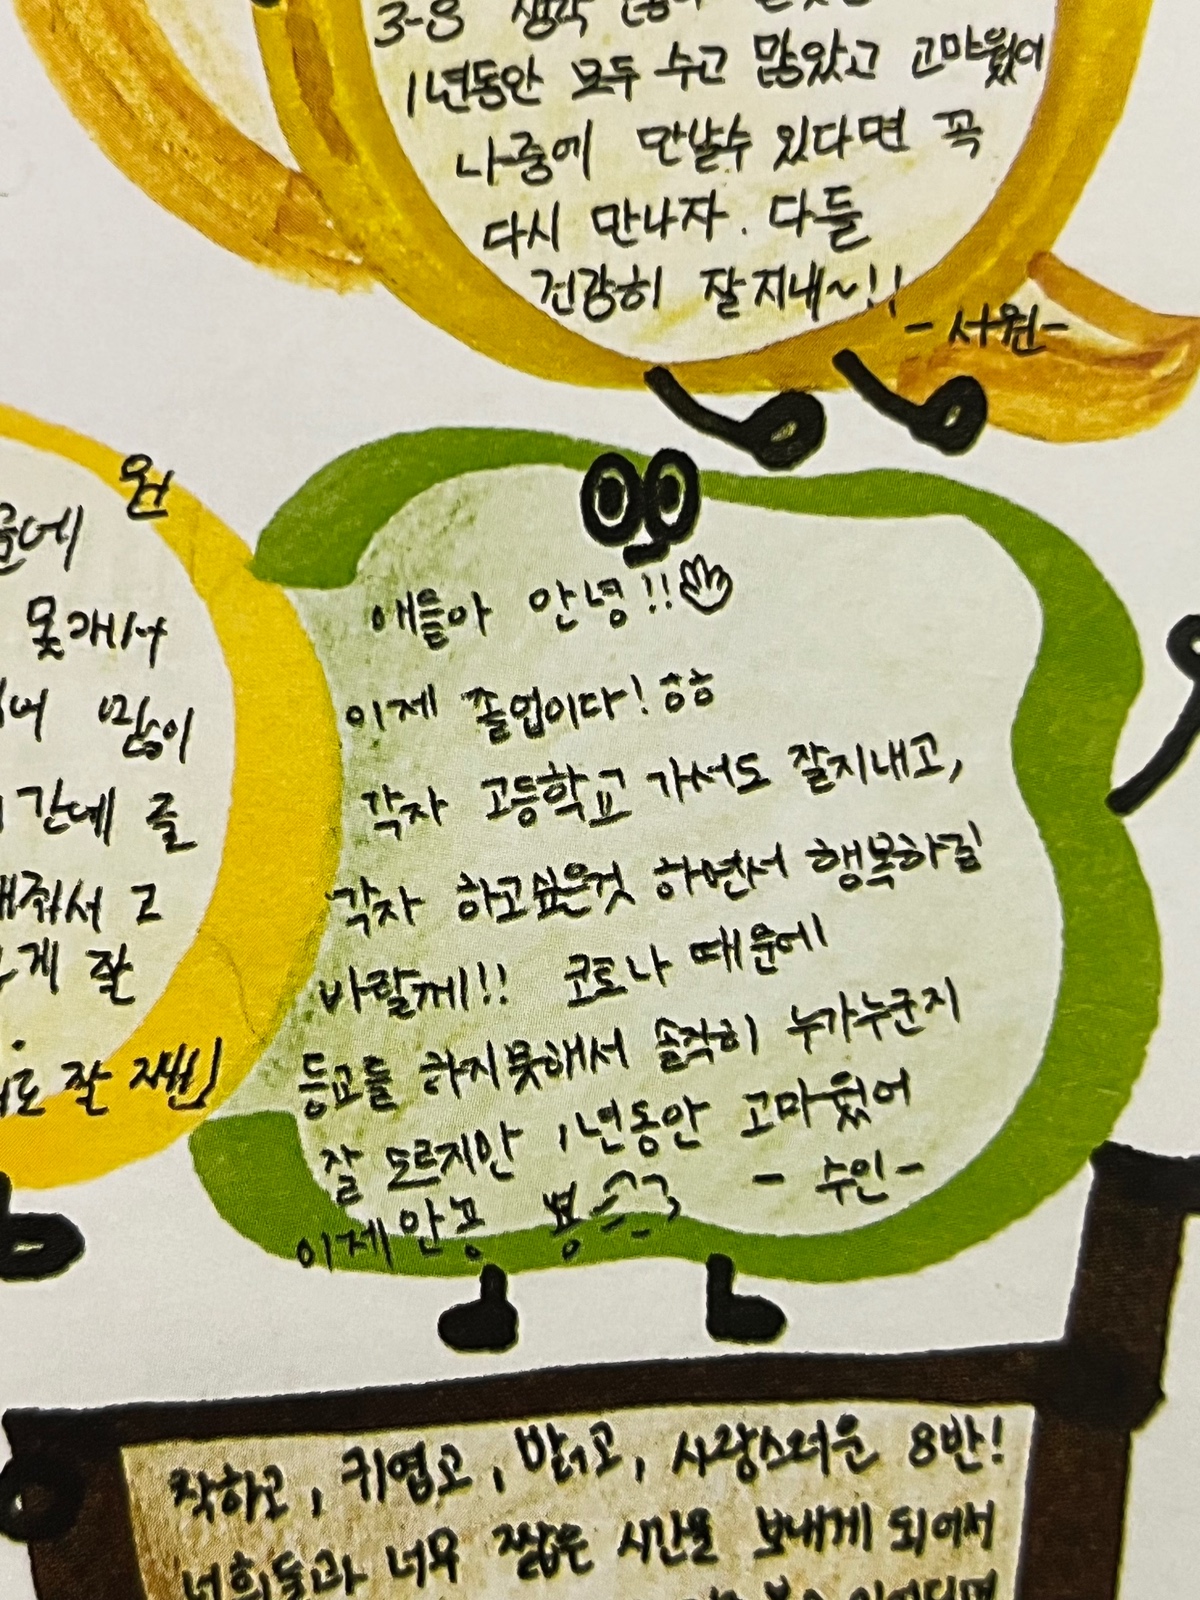 3-8 생각
1년동안 모두 수고 많았고 고마웠어
나중에 만날수 있다면 꼭
다시 만나자. 다들
건강히 잘지내~!!
-서원-
원
문에
못개서
많이
간데 즐
해줘서 고
게 잘
로 잘 지내
애들아 안녕!!
이제 졸업이다! ㅎㅎ
각자 고등학교 가서도 잘지내고,
각자 하고싶은것 하면서 행복하길
바랄께!! 코로나 때문에
등교를 하지못해서 솔직히 누가누군지
잘 모르지만 1년동안 고마웠어
이제 안뇽 뿅
- 수인 -
착하고, 귀엽고, 밝고, 사랑스러운 8반!
너희들과 너무 짧은 시간을 보내게 되어서